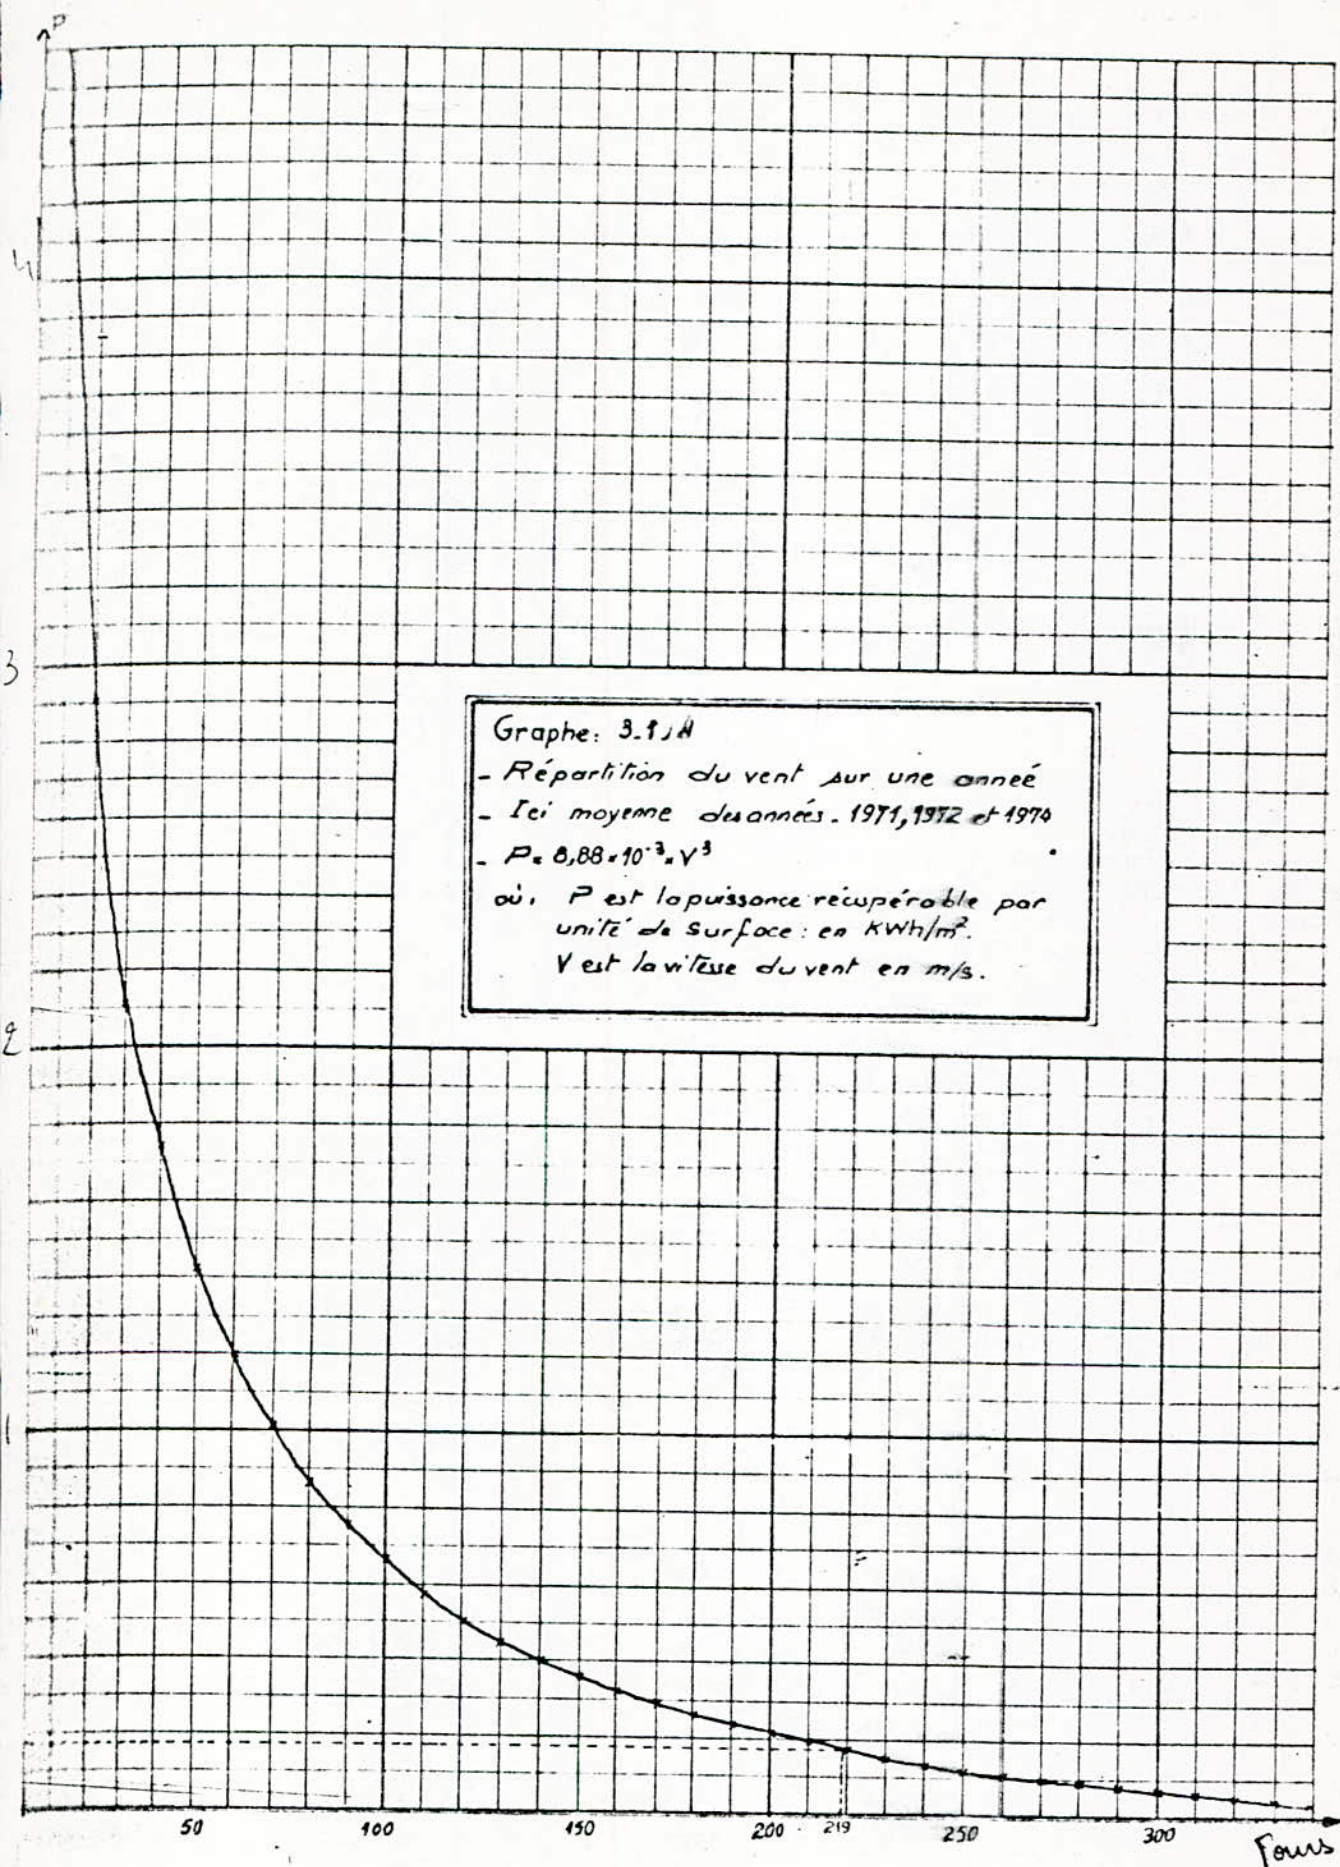 P
4
3
Graphe: 3.1
- Répartition du vent sur une anneé
- Ici moyenne des années. 1971, 1972 et 1974
- P = 8,88 × 10⁻³ × V³
où, P est la puissance récupérable par
unité de Surface: en KWh/m².
V est la vitesse du vent en m/s.
2
1
50 100 150 200 219 250 300
Jours